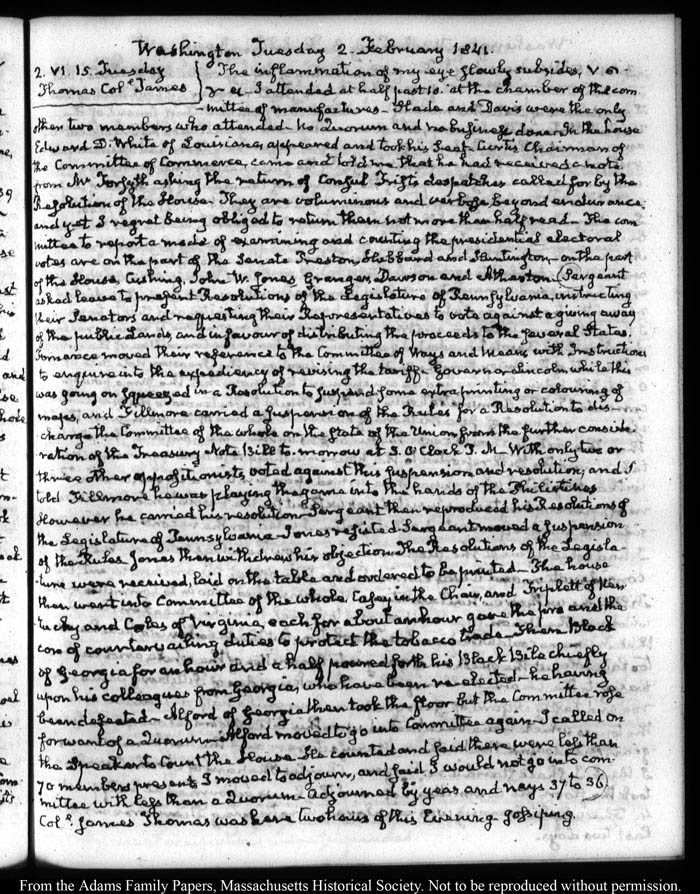 Washington Tuesday 2. February 1841.
2. VI. 15. Tuesday
Thomas Colo. James
The inflammation of my eye slowly subsides,
I attended at half past 10. at the chamber of the com-
mittee of manufactures. Slade and Davis were the only
other two members who attended. No Quorum and no business done. In the house
Edward D. White of Louisiana, appeared and took his seat. Curtis Chairman of
the Committee of Commerce, came and told me that he had received a note
from Mr Forsyth asking the return of Consul Trist's despatches called for by the
Resolution of the House. They are voluminous and verbose beyond endurance,
and yet I regret being obliged to return them not more than half read. The com-
mittee to report a mode of examining and counting the presidential electoral
votes are on the part of the Senate Preston, Hubbard and Huntington, on the part
of the House, Cushing, John W. Jones, Granger, Dawson and Atherton. Sergeant
asked leave to present Resolutions of the Legislature of Pennsylvania, instructing
their Senators and requesting their Representatives to vote against a giving away
of the public Lands, and in favour of distributing the proceeds to the several States.
Fornance moved their reference to the Committee of Ways and Means with Instructions
to enquire into the expediency of revising the tariff. Governor Lincoln while this
was going on squeezed in a Resolution to suspend some extra printing or colouring of
maps, and Fillmore carried a suspension of the Rules for a Resolution to dis-
charge the Committee of the whole on the state of the Union from the further conside-
ration of the Treasury Note Bill to-morrow at 3. O'Clock P.M. With only two or
three other oppositionists, voted against this suspension and resolution, and I
told Fillmore he was playing the game into the hands of the Philistines
However he carried his resolution. Sergeant then reproduced his Resolutions of
the Legislature of Pennsylvania. Jones objected. Sergeant moved a suspension
of the Rules. Jones then withdrew his objection. The Resolutions of the Legisla-
ture were received, laid on the table and ordered to be printed. The house
then went into Committee of the whole, Casey in the Chair, and Triplett of Ken-
tucky and Coles of Virginia, each for about an hour gave the pro and the
con of countervailing duties to protect the tobacco trade. Then Black
of Georgia for an hour and a half poured forth his Black Bile chiefly
upon his colleagues from Georgia, who have been re-elected, he having
been defeated. Alford of Georgia then took the floor but the Committee rose
for want of a Quorum. Alford moved to go into Committee again. I called on
the Speaker to count the House. He counted and said there were less than
70 members present. I moved to adjourn, and said I would not go into com-
mittee with less than a Quorum. Adjourned by yeas and nays 37 to 36.
Colo. James Thomas was here two hours of this Evening gossiping.
From the Adams Family Papers, Massachusetts Historical Society. Not to be reproduced without permission.